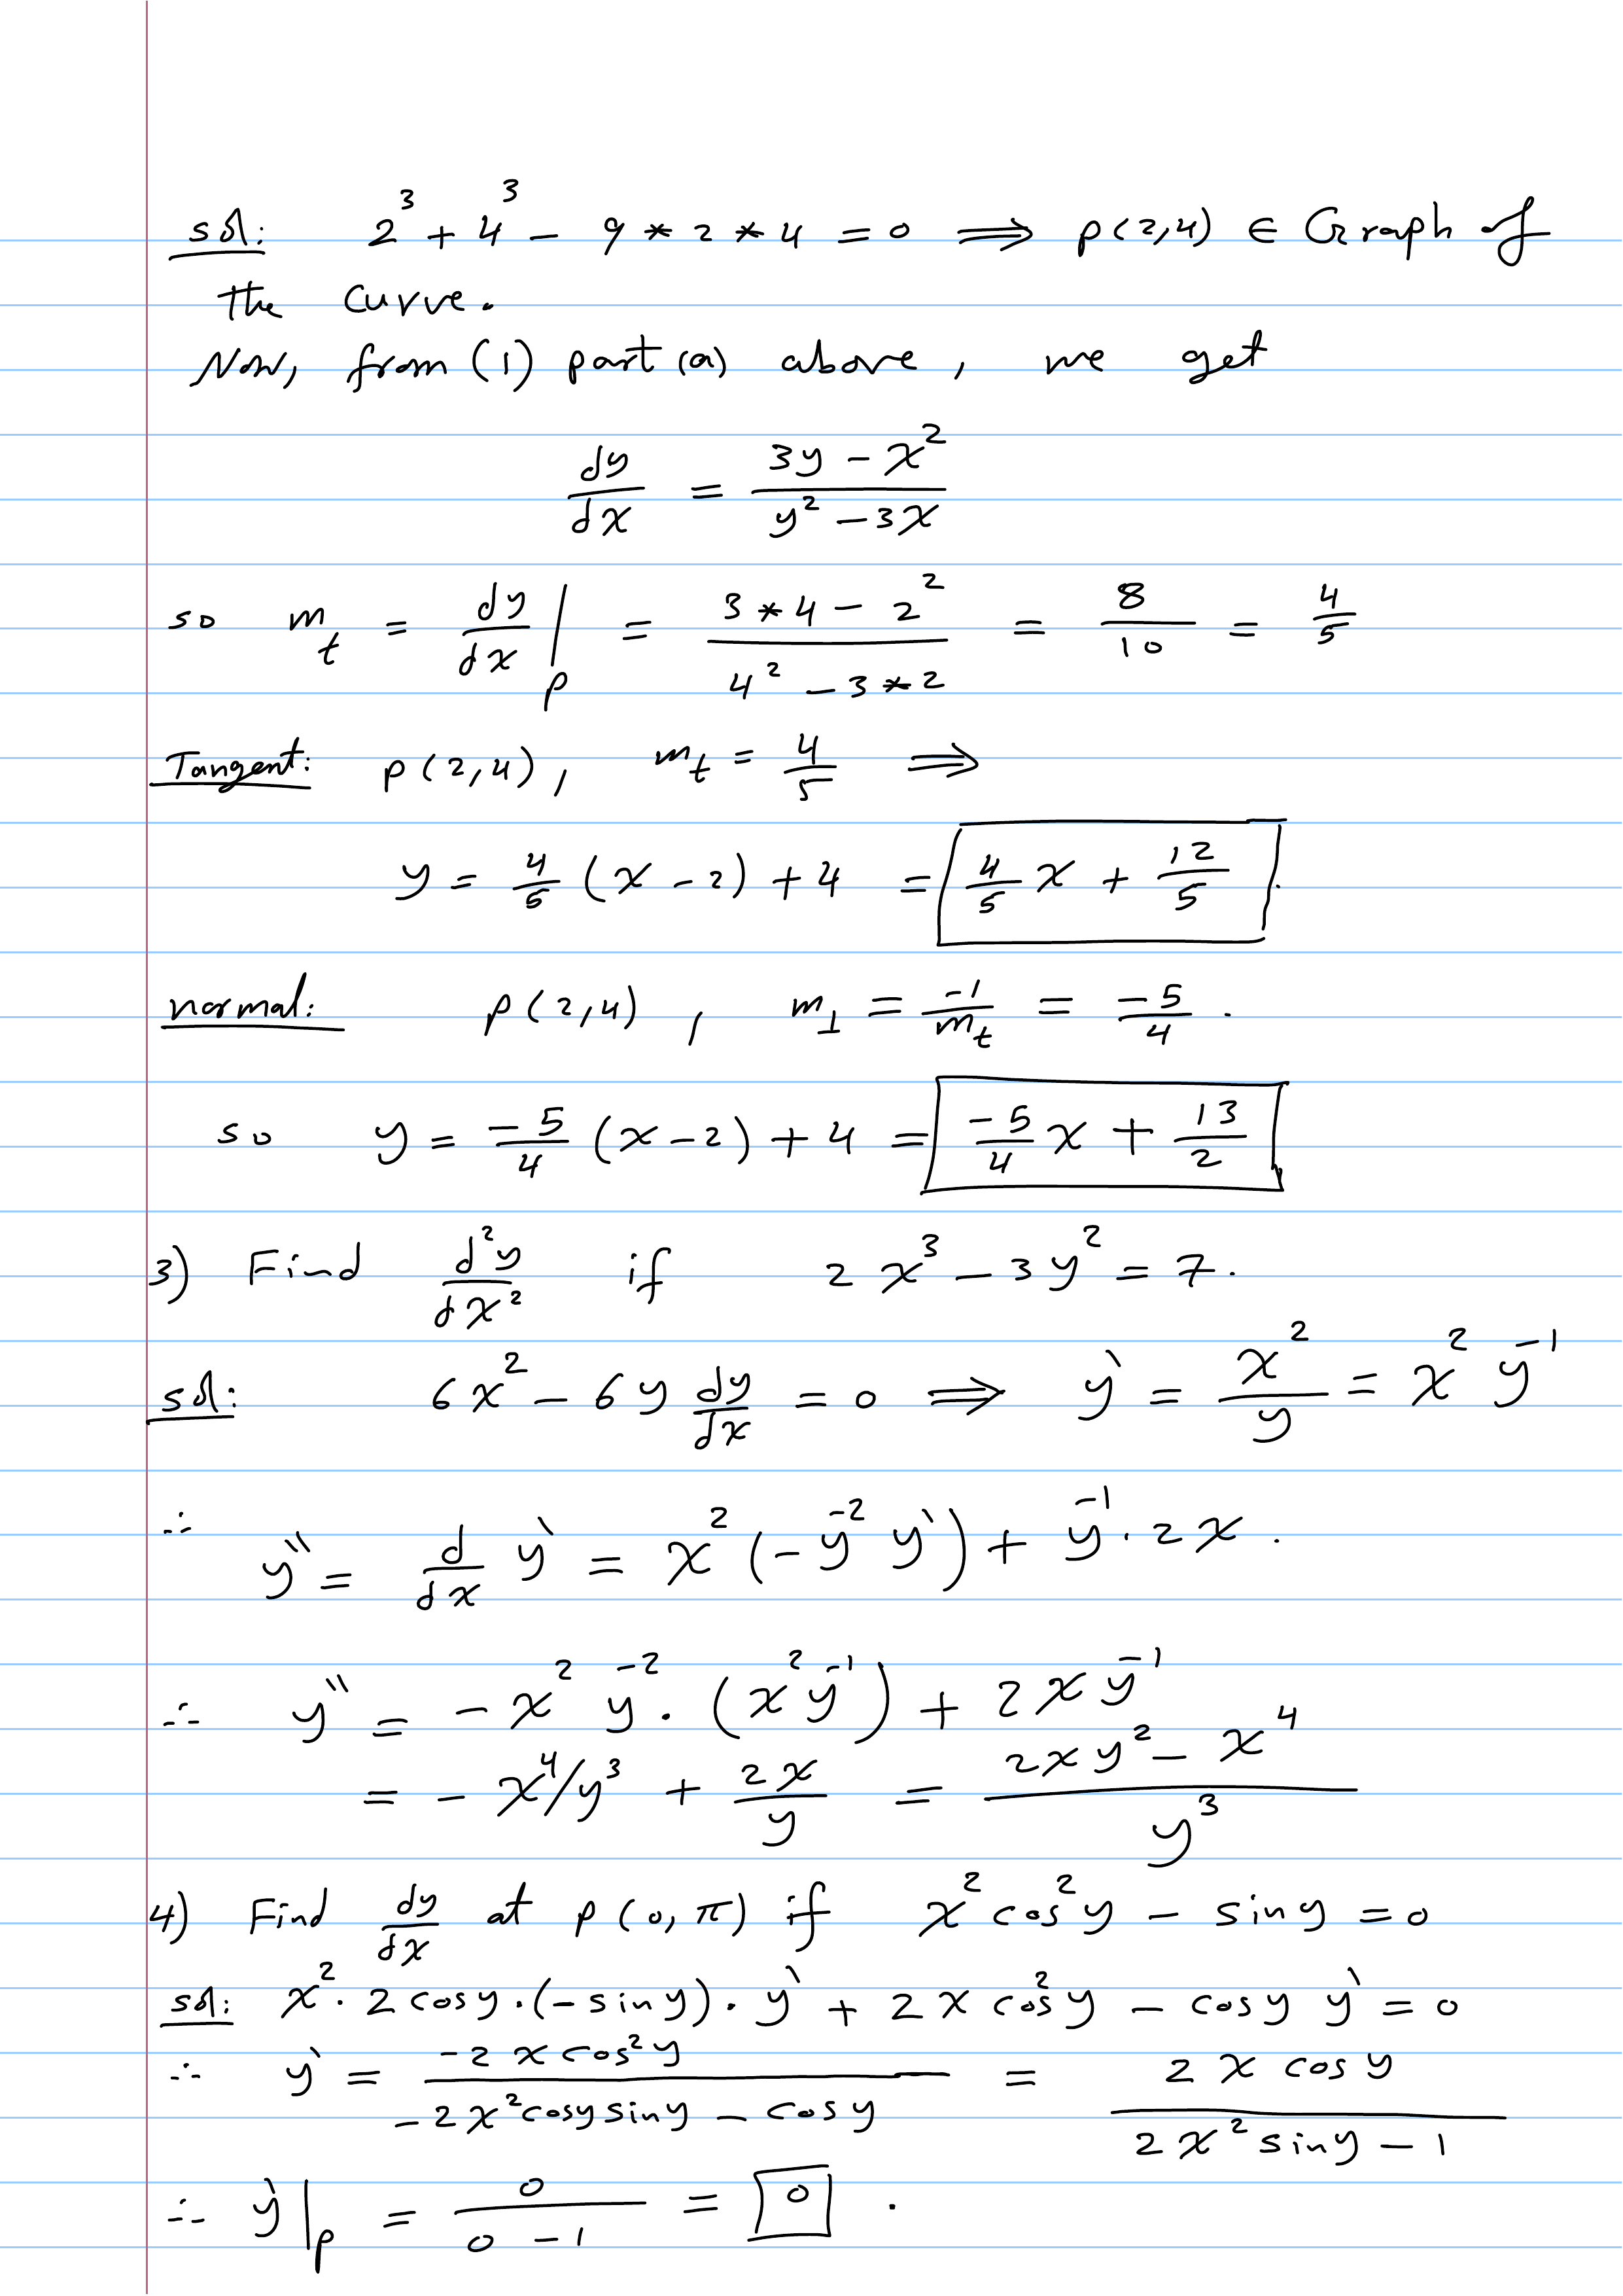 sol: 2³ + 4³ - 9 * 2 * 4 = 0 ⟹ p(2,4) ∈ Graph of
the curve.
Now, from (1) part (a) above, we get
dy/dx = (3y - x²)/(y² - 3x)
so m_t = dy/dx |_p = (3*4 - 2²)/(4² - 3*2) = 8/10 = 4/5
Tangent: p(2,4), m_t = 4/5 ⟹
y = 4/5 (x - 2) + 4 = 4/5 x + 12/5.
normal: p(2,4), m_⊥ = -1/m_t = -5/4.
so y = -5/4 (x - 2) + 4 = -5/4 x + 13/2
3) Find d²y/dx² if 2x³ - 3y² = 7.
sol: 6x² - 6y dy/dx = 0 ⟹ y` = x²/y = x² y⁻¹
∴ y`` = d/dx y` = x² (-y⁻² y`) + y⁻¹ · 2x.
∴ y`` = -x² y⁻² · (x² y⁻¹) + 2x y⁻¹
= -x⁴/y³ + 2x/y = (2xy² - x⁴)/y³
4) Find dy/dx at p(0, π) if x² cos²y - sin y = 0
sol: x² · 2 cos y · (-sin y) · y` + 2x cos²y - cos y y` = 0
∴ y` = (-2x cos²y)/(-2x² cos y sin y - cos y) = (2x cos y)/(2x² sin y - 1)
∴ y`|_p = 0/(0 - 1) = 0.